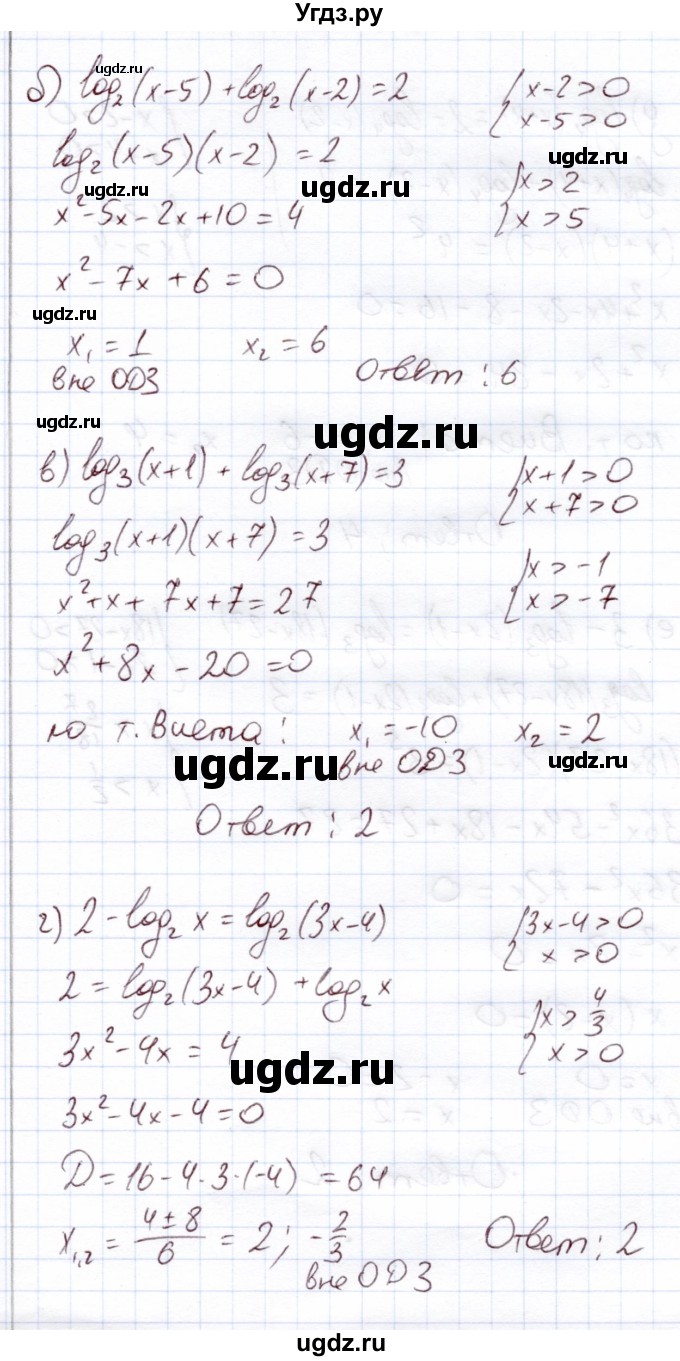 Угдз.ру
ugdz.ru
б) log₂(x-5) + log₂(x-2) = 2    { x-2>0
{ x-5>0
log₂(x-5)(x-2) = 2
ugdz.ru
ugdz.ru
ugdz.ru
{ x>2
x²-5x-2x+10 = 4    { x>5
x²-7x+6=0
ugdz.ru
x₁=1    x₂=6
вне ОДЗ    Ответ: 6
ugdz.ru
ugdz.ru
в) log₃(x+1) + log₃(x+7)=3    { x+1>0
{ x+7>0
ugdz.ru
log₃(x+1)(x+7) = 3
{ x>-1
ugdz.ru
x²+x+7x+7=27    { x>-7
ugdz.ru
x²+8x-20=0
по т. Виета:    x₁=-10    x₂=2
ugdz.ru    вне ОДЗ    ugdz.ru
Ответ: 2
ugdz.ru
г) 2-log₂x=log₂(3x-4)    { 3x-4>0
{ x>0
ugdz.ru
2=log₂(3x-4)+log₂x
{ x>4/3
3x²-4x=4    { x>0
ugdz.ru
ugdz.ru
3x²-4x-4=0
D=16-4·3·(-4)=64
ugdz.ru
x₁,₂ = (4±8)/6 = 2; -2/3    Ответ: 2
ugdz.ru    вне ОДЗ
ugdz.ru
ugdz.ru